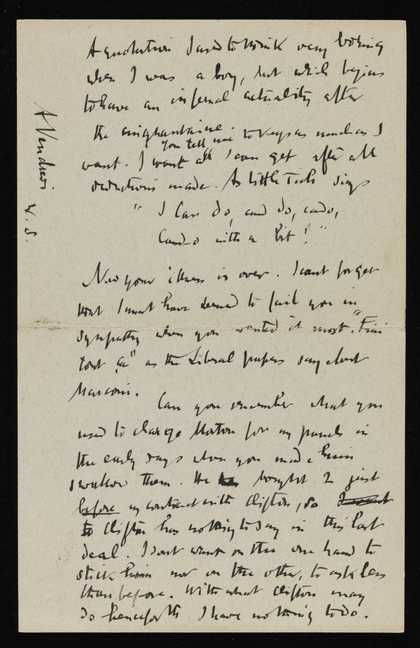 A quotation I used to think very boring
when I was a boy, but which begins
to have an infernal actuality after
the cinquantaine.
You tell me to keep as much as I
want. I want all I can get after all
deductions made. As little Tich sings
" I can do, and do, cando,
Cand-o with a bit!"
A Vendredi
W. S.
Now your illness is over. I cant forget
that I must have seemed to fail you in
sympathy when you wanted it most. "Fini
tout ça" as the Liberal papers say about
Marconi.
Can you remember what you
used to charge Hutton for my panels in
the early days when you made him
swallow them. He bought 2 just
before my contract with Clifton, so
Clifton has nothing to say in this last
deal. I dont want on the one hand to
stick him nor on the other, to ask less
than before. With what Clifton may
do henceforth I have nothing to do.